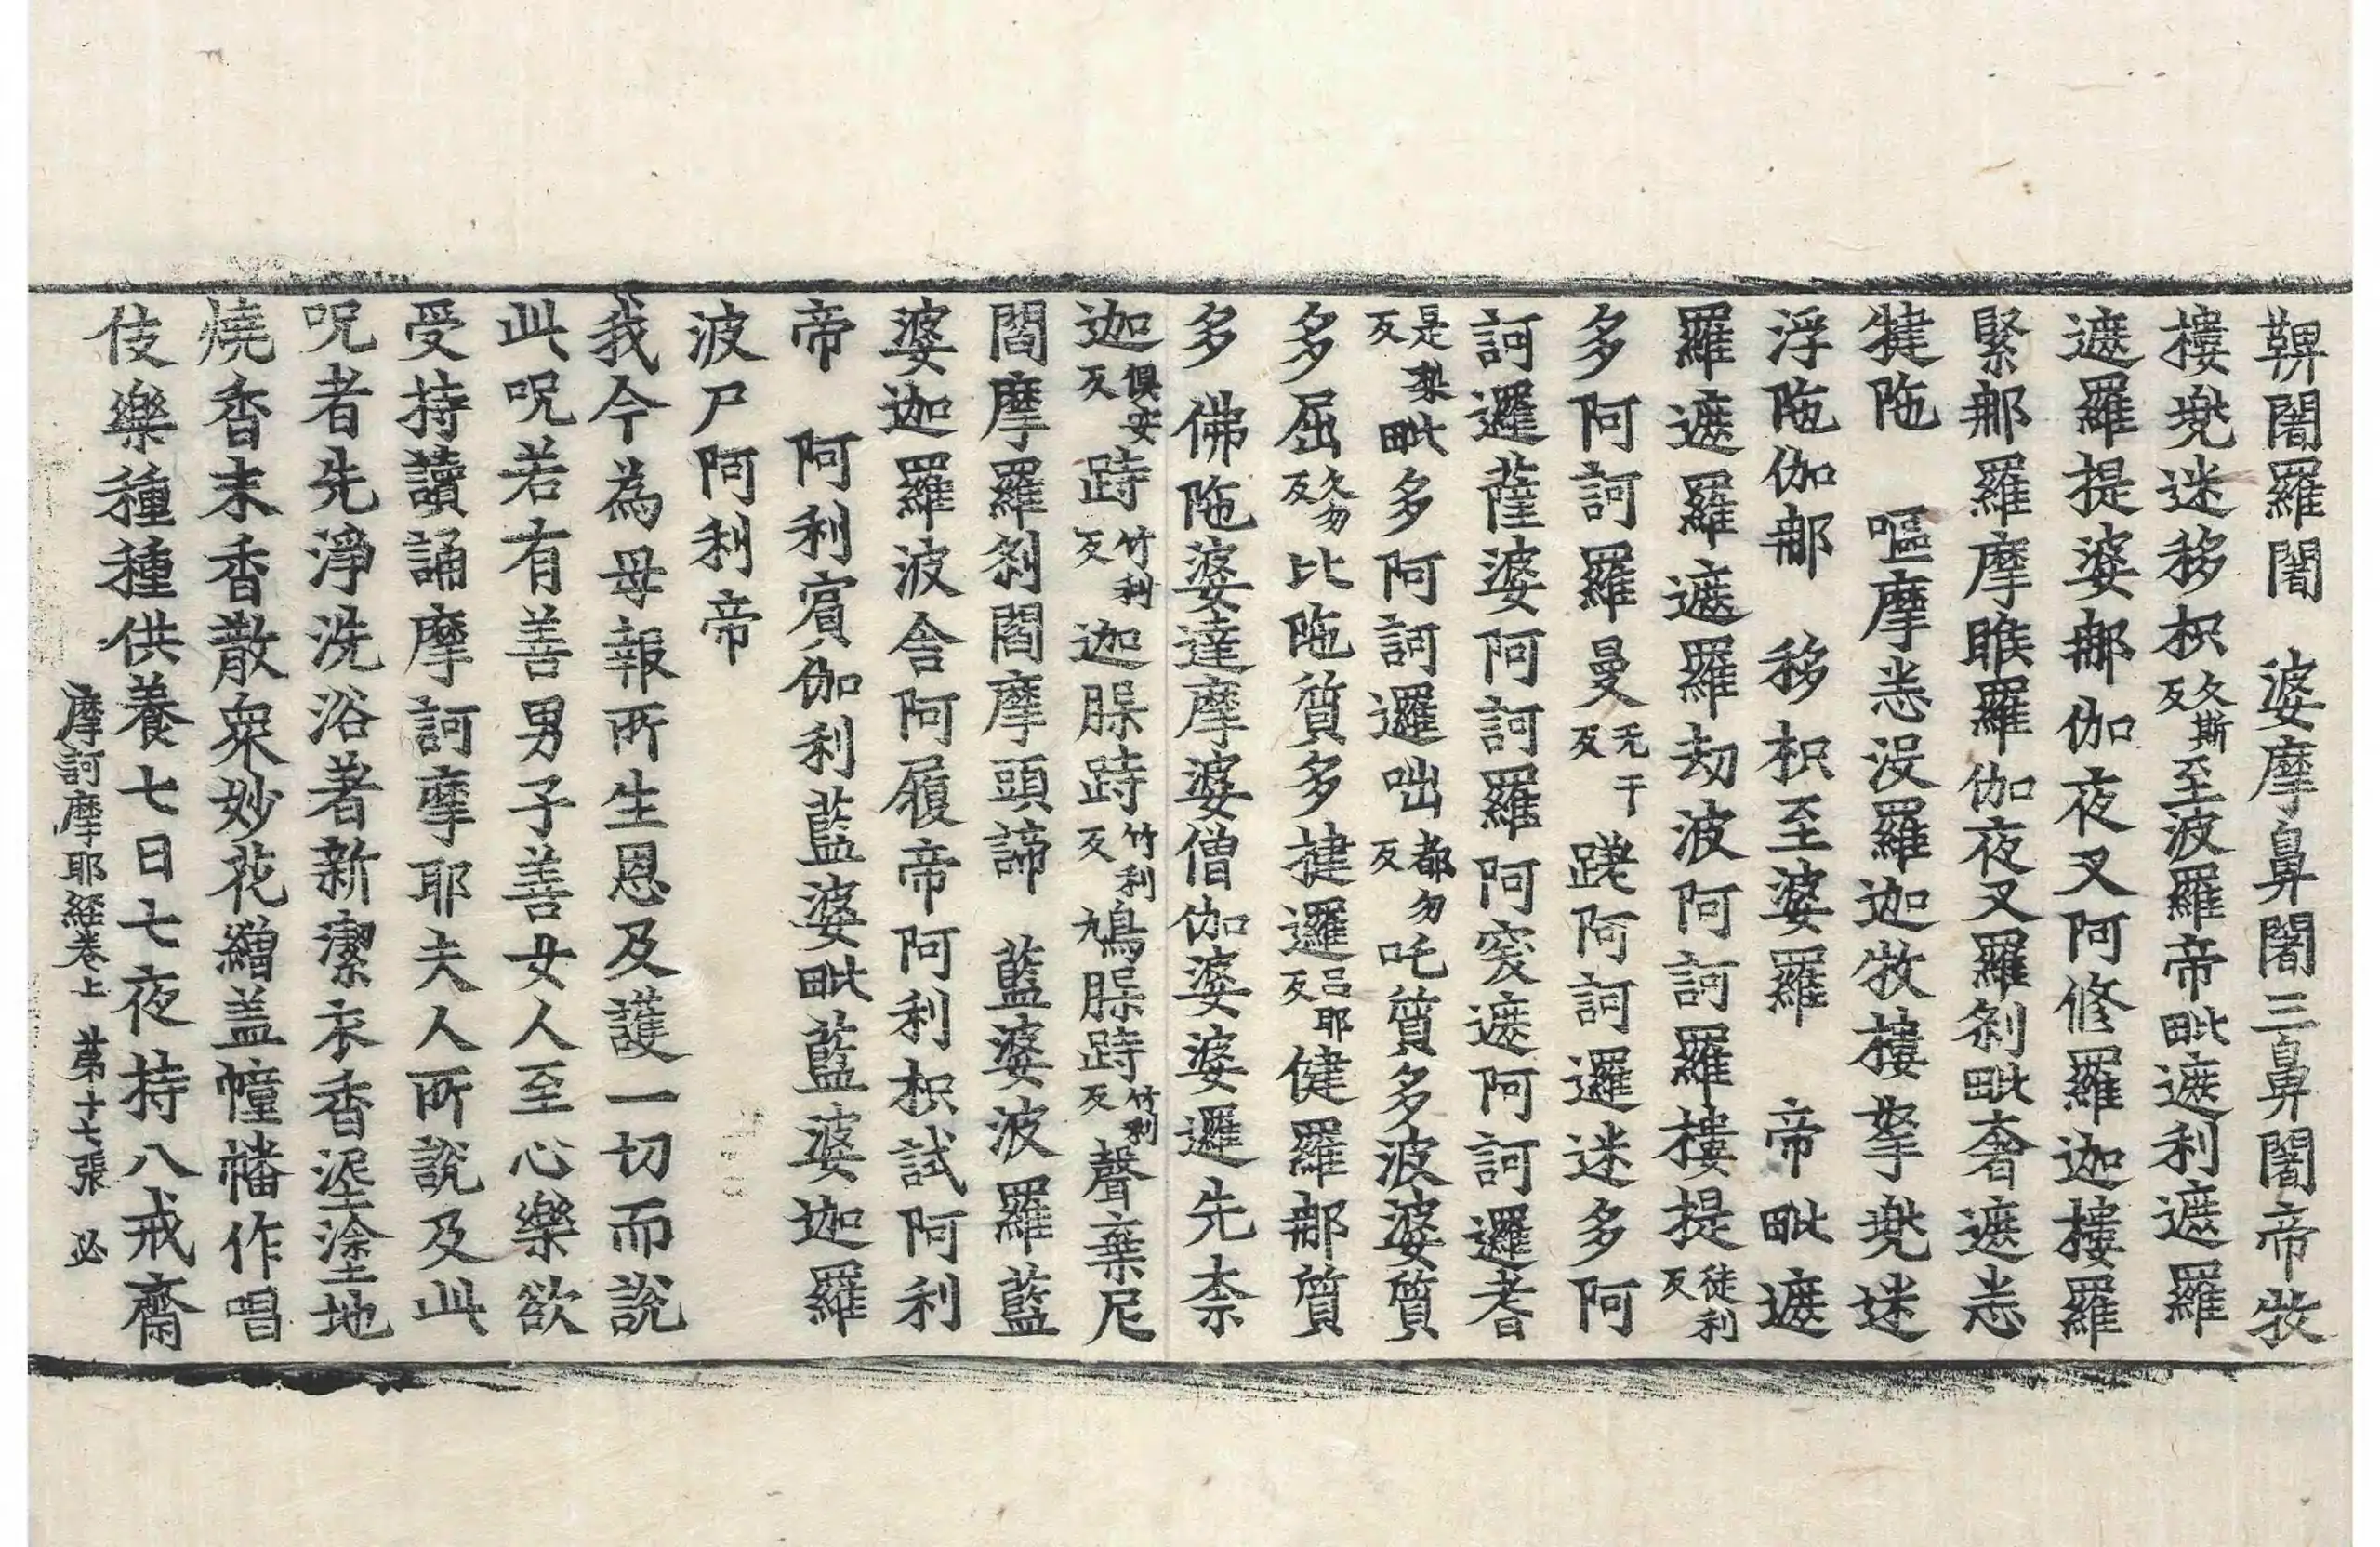 鞞闍羅闍　婆摩鼻闍三鼻闍帝牧
樓兠迷移枳久斯反至波羅帝毗遮利遮羅
遮羅提婆那伽夜叉阿修羅迦樓羅
緊那羅摩睺羅伽夜叉羅刹毗奢遮恙
犍陁　嘔摩恙没羅迦牧樓拏兠迷
浮陁伽那　移枳至婆羅　帝毗遮
羅遮羅遮羅劫波阿訶羅樓提徒利反
多阿訶羅曼无干反蹉阿訶邏迷多阿
訶邏薩婆阿訶羅阿窔遮阿訶邏耆
是梨反毗多阿訶邏咄都勿反吒質多波婆質
多屈久勿反比陁質多揵邏吕耶反健羅那質
多　佛陁婆達摩婆僧伽婆婆邏先柰
迦俱安反跱竹利反迦脲跱竹利反鳩脲跱竹利反聲棄尼
閻摩羅刹閻摩頭諦　藍婆波羅藍
婆迦羅波舍阿履帝阿利枳試阿利
帝　阿利賔伽利藍婆毗藍婆迦羅
波尸阿利帝
我今為母報所生恩及護一切而說
此呪若有善男子善女人至心樂欲
受持讀誦摩訶摩耶夫人所說及此
呪者先淨洗浴著新潔衣香埿塗地
燒香末香散衆妙花繒盖幢幡作唱
伎樂種種供養七日七夜持八戒齋
摩訶摩耶經卷上　第十七張　必